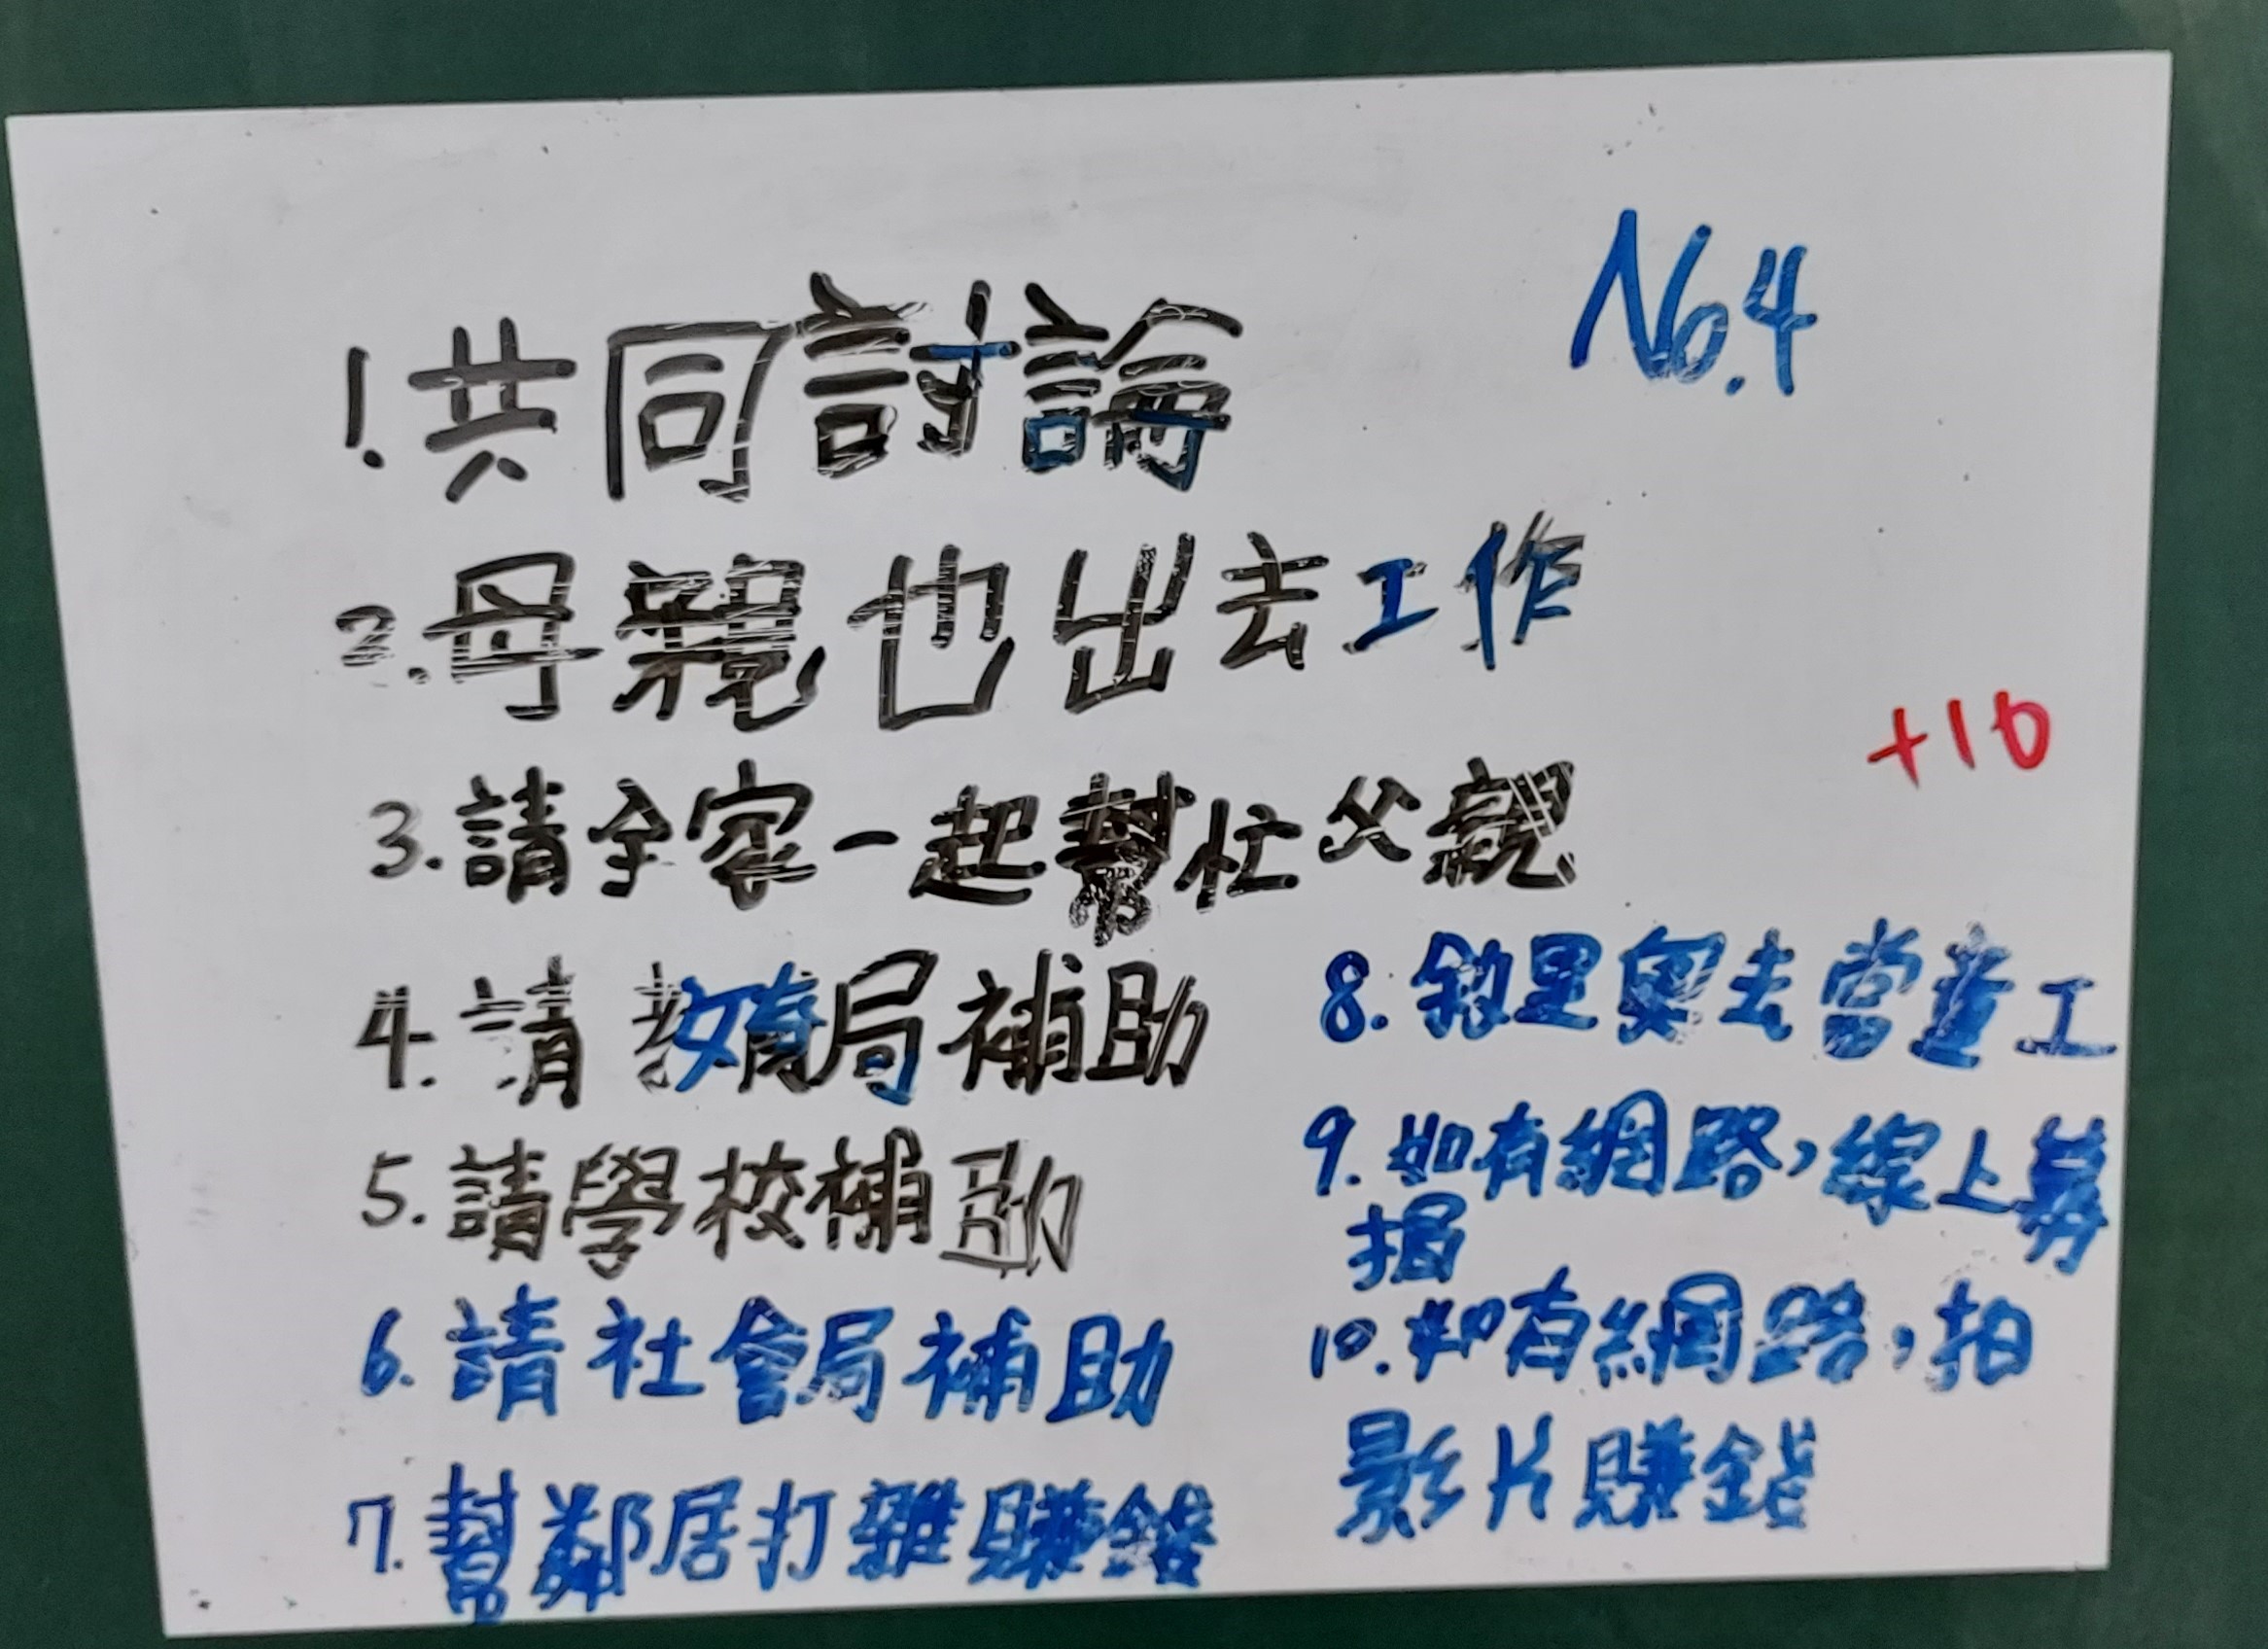 No.4
1.共同討論
2.母親也出去工作
3.請全家一起幫忙父親
4.請教育局補助
5.請學校補助
6.請社會局補助
7.幫鄰居打雜賺錢
+10
8.敘里奧去當童工
9.如有網路,線上募
捐
10.如有網路,拍
影片賺錢